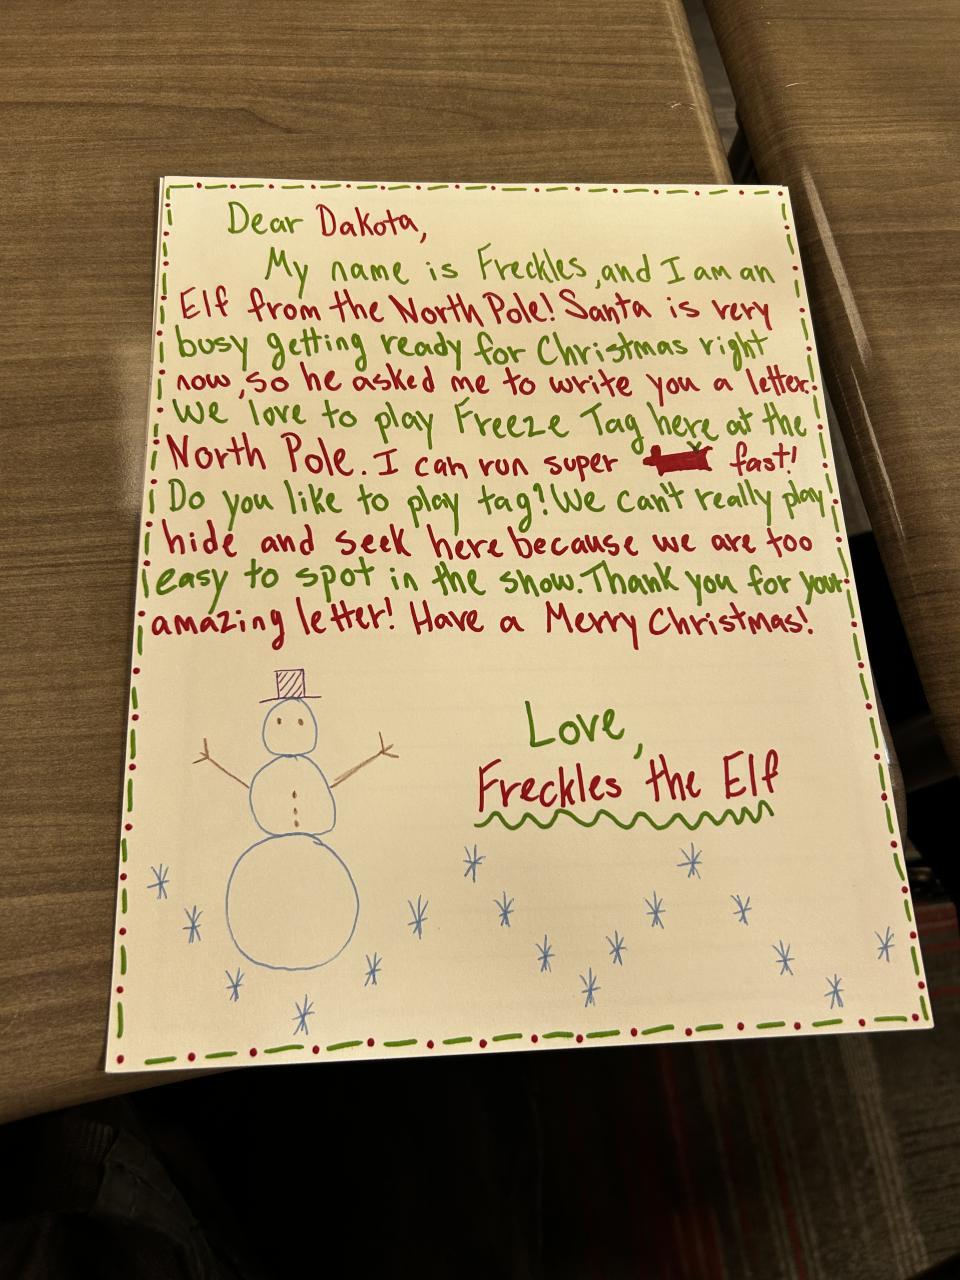 Dear Dakota,
My name is Freckles, and I am an
Elf from the North Pole! Santa is very
busy getting ready for Christmas right
now, so he asked me to write you a letter.
We love to play Freeze Tag here at the
North Pole. I can run super fast!
Do you like to play tag? We can't really play
hide and seek here because we are too
easy to spot in the show. Thank you for your
amazing letter! Have a Merry Christmas!
Love,
Freckles the Elf